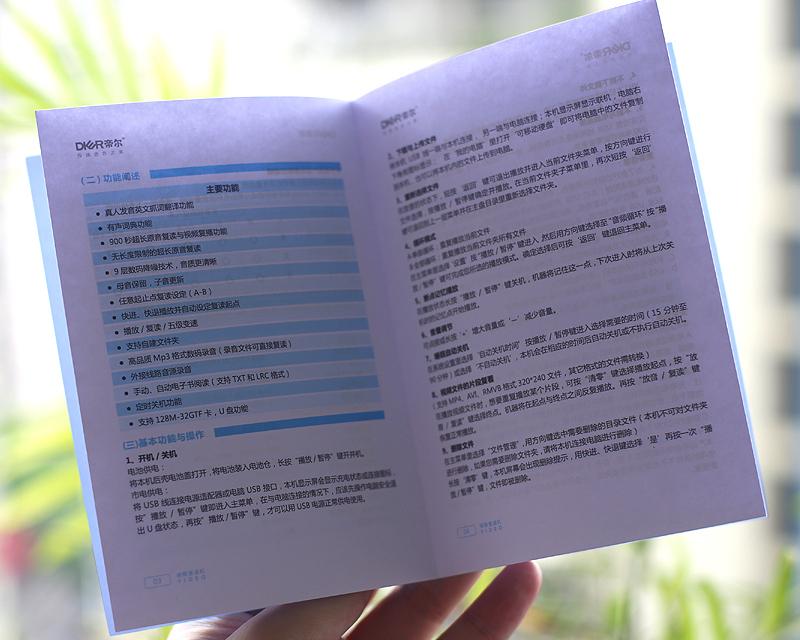 DKER帝尔
(二) 功能阐述
主要功能
• 真人发音英文抓词翻译功能
• 有声词典功能
• 900 秒超长原音复读与视频复播功能
• 无长度限制的超长原音复读
• 9 层数码降噪技术，音质更清晰
• 母音保留，子音更新
• 任意起止点复读设定（A-B）
• 快进、快退播放并自动设定复读起点
• 播放 / 复读 / 五级变速
• 支持自建文件夹
• 高品质 Mp3 格式数码录音（录音文件可直接复读）
• 外接线路音源录音
• 手动、自动电子书阅读（支持 TXT 和 LRC 格式）
• 定时关机功能
• 支持 128M-32GTF 卡，U 盘功能
(三)基本功能与操作
1、开机 / 关机
电池供电：
将本机后壳电池盖打开，将电池装入电池仓，长按“播放 / 暂停”键开机。
市电供电：
将 USB 线连接电源适配器或电脑 USB 接口，本机显示屏会显示充电状态或连接图标，
按“播放 / 暂停”键即进入主菜单，在与电脑连接的情况下，应该先操作电脑安全退
出 U 盘状态，再按“播放 / 暂停”键，才可以用 USB 电源正常供电使用。
03
VIDEO
DKER帝尔
2、下载与上传文件
USB 线一端与本机连接，另一端与电脑连接；本机显示屏显示联机，电脑右
在“我的电脑”里打开“可移动硬盘”即可将电脑中的文件复制
也可以将本机内的文件上传到电脑。
3、重新选择文件
在放音的状态下，短按“返回”键可退出播放并进入当前文件夹菜单，按方向键进行
文件选择，按播放 / 暂停键确定并播放。在当前文件夹子菜单里，再次短按“返回”
键可返回到上一层菜单并在主盘目录里重新选择文件夹。
4、循环模式
单曲循环：重复播放当前文件
全部循环：重复播放当前文件夹所有文件
在主菜单里选择“设置”按“播放 / 暂停”键进入，然后用方向键选择至“音频循环”按“播
放 / 暂停”键可完成您所选的播放模式。确定选择后可按“返回”键退回主菜单。
5、断点记忆播放
在播放状态长按“播放 / 暂停”键关机，机器将记住这一点，下次进入时将从上次关
机时的记忆点开始播放。
6、音量调节
可点按或长按“+”增大音量或“—”减少音量。
7、睡眠自动关机
在系统设置里选择“自动关机时间”按播放 / 暂停键进入选择需要的时间（15 分钟至
90 分钟）或选择“不自动关机”，本机会在相应的时间后自动关机或不执行自动关机。
8、视频文件的片段复看
（支持 MP4、AVI、RMVB 格式 320*240 文件，其它格式的文件需转换）
在播放视频文件时，想要重复播放某个片段，可按“清零”键选择播放起点，按“放
音 / 复读”键选择终点。机器将在起点与终点之间反复播放。再按“放音 / 复读”键
恢复正常播放。
9、删除文件
在主菜单里选择“文件管理”，用方向键选中需要删除的目录文件（本机不可对文件夹
进行删除，如果您需要删除文件夹，请将本机连接电脑进行删除）
长按“清零”键，本机屏幕会出现删除提示，用快进、快退键选择“是”再按一次“播
放 / 暂停”键，文件即被删除。
04
VIDEO